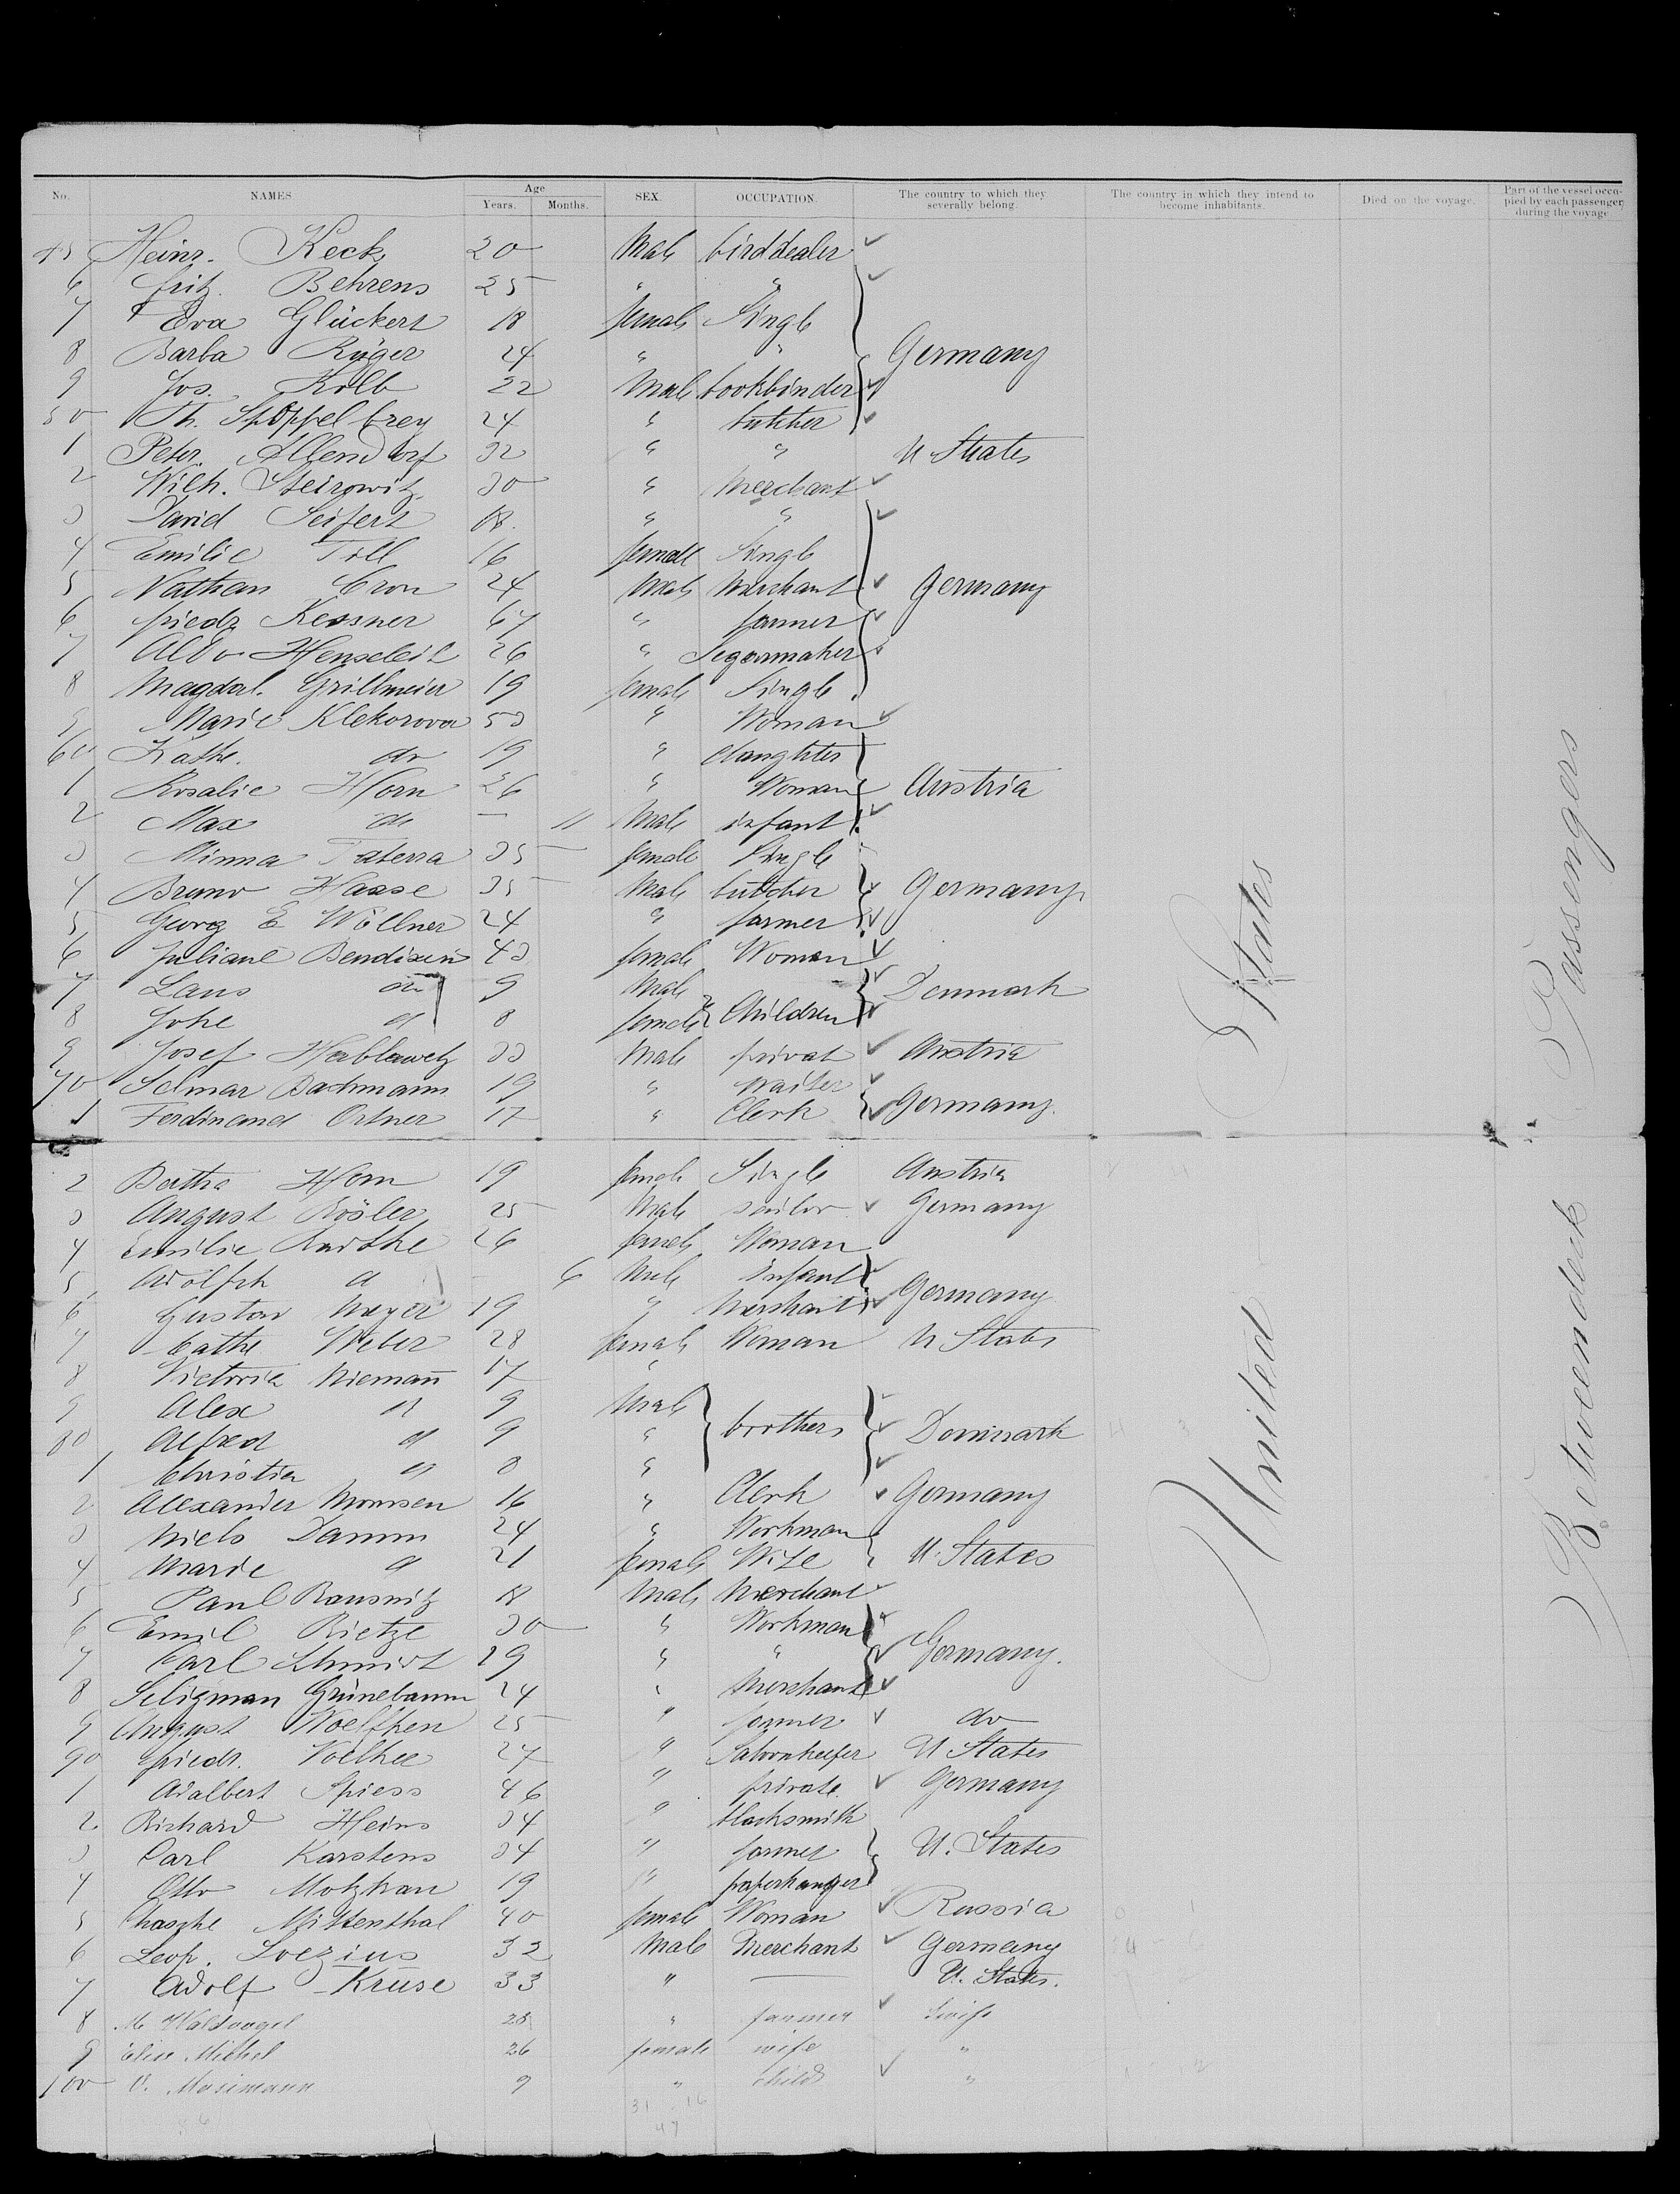 No. NAMES Age Years. Months. SEX. OCCUPATION. The country to which they severally belong. The country in which they intend to become inhabitants. Died on the voyage. Part of the vessel occupied by each passenger during the voyage
45 Heinr. Keck 20 Male birddealer
6 Fritz Behrens 25 " "
7 Eva Glückert 18 female Single
8 Barba Rüger 24 " " Germany
9 Jos. Kolb 22 Male bookbinder
50 Th. Stoppelbrey 24 " butcher
1 Peter Allendorf 32 " " U States
2 Wilh. 30 " Merchant
3 David Seifert 18 " "
4 Emilie Till 16 female Single
5 Nathan Cron 24 Male Merchant Germany
6 friedr Kessner 67 " farmer
7 Henseleit 26 " Segarmaker
8 Magdal. Grillmeier 19 female Single
9 Marie Klekorova 53 " Woman
60 Kathe. do 19 " daughter
1 Rosalie Horn 26 " Woman Austria
2 Max do — 11 Male infant
3 Minna Taterra 35 female Single
4 Bruno Haase 35 Male butcher Germany
5 Georg E Wöllner 24 " farmer
6 Juliane Bendixen 43 female Woman
7 Laus do 9 Male Denmark
8 d 8 female Children
9 Josef Hablawetz 33 Male privat Austria
70 Selmar Bachmann 19 " waiter
1 Ferdinand Ortner 17 " Clerk Germany.
2 Bertha Horn 19 female Single Austria
3 August Rösler 25 Male sailor Germany
4 Emilie Radthe 26 female Woman
5 Adolph d — 6 Male infant Germany
6 Gustav Meyer 19 " Merchant
7 Cathe Weber 28 female Woman U States
8 Victoria Niemann 17 "
9 Alex d 9 Male
80 Alfred d 9 " brothers Denmark
1 Christian d 8 "
2 Alexander Momsen 16 " Clerk Germany
3 Niels Damm 24 " Workman
4 Marie d 21 female Wife U. States
5 Paul Rausnitz 18 Male Merchant
6 Emil Rietze 30 " Workman
7 Carl Schmidt 29 " " Germany.
8 Seligman Grünebaum 24 " Merchant
9 August Woelfken 25 " farmer do
90 friedr. Voelkee 27 " Saloonkeeper U States
1 Adalbert Spiess 46 " private. Germany
2 Richard Heins 34 " blacksmith
3 Carl Karstens 34 " farmer U. States
4 Otto Motzkau 19 " paperhanger
5 Chasche Mittenthal 40 female Woman Russia
6 Leop. Loezius 32 Male Merchant Germany
7 Adolf Kruse 33 " — U. States.
8 M Waldvogel 28 " farmer Swiss
9 Elise Michel 26 female wife "
100 V. Musimann 9 " child "
31 16
47
United States
Betweendeck Passengers